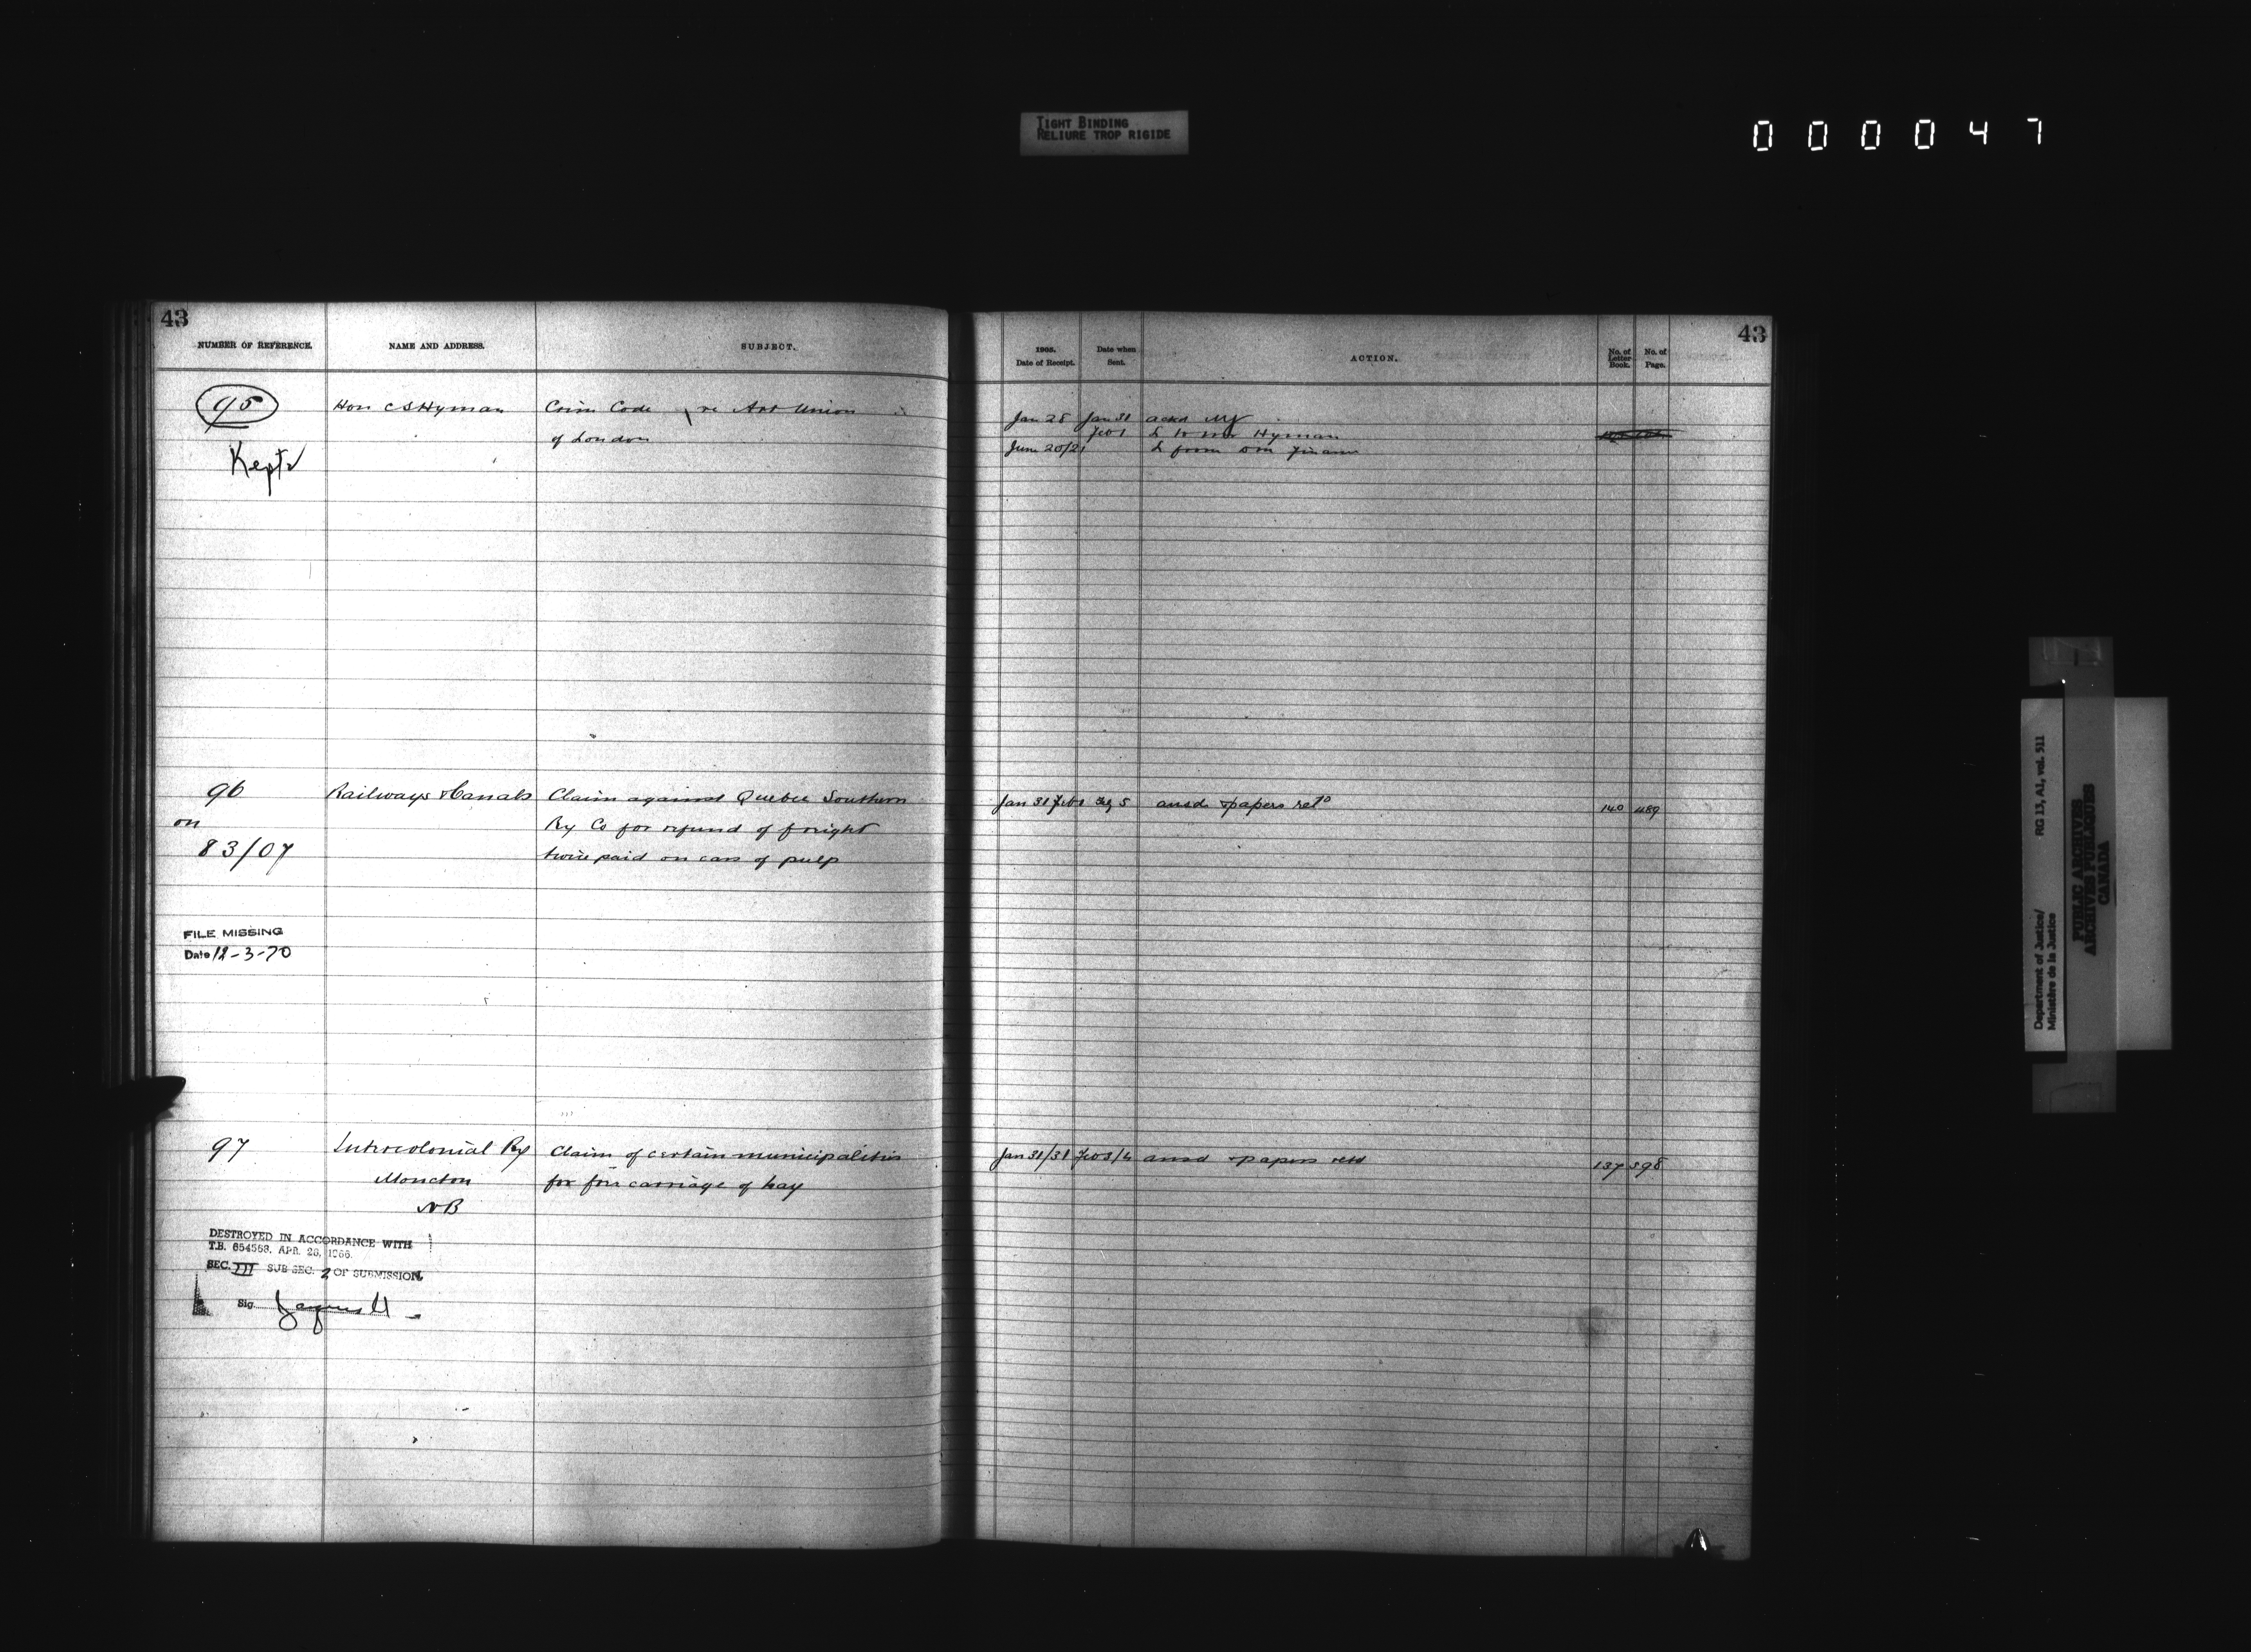 TIGHT BINDING
RELIURE TROP RIGIDE
000047
43
NUMBER OF REFERENCE.
NAME AND ADDRESS.
SUBJECT.
95
Hon C S Hyman
Crim Code re Art Union
of London
Kept
96
Railways & Canals
Claim against Quebec Southern
on
Ry Co for refund of freight
83/07
twice paid on cars of pulp
FILE MISSING
Date 12-3-70
97
Intercolonial Ry
Claim of certain municipalities
Moncton
for free carriage of hay
NB
DESTROYED IN ACCORDANCE WITH
T.B. 654558, APR. 28, 1966.
SEC. III SUB SEC. 2 OF SUBMISSION.
Sig.
43
1905.
Date of Receipt.
Date when
Sent.
ACTION.
No. of
Letter
Book.
No. of
Page.
Jan 28 Jan 31 ackd
Feb 1 L to Mr Hyman
June 20/21 L from Finance
Jan 31 Feb 1 5 ansd & papers retd
140 489
Jan 31/31 Feb 3/4 ansd & papers retd
137 598
Department of Justice/
Ministère de la Justice
RG 13, A1, vol. 511
PUBLIC ARCHIVES
ARCHIVES PUBLIQUES
CANADA